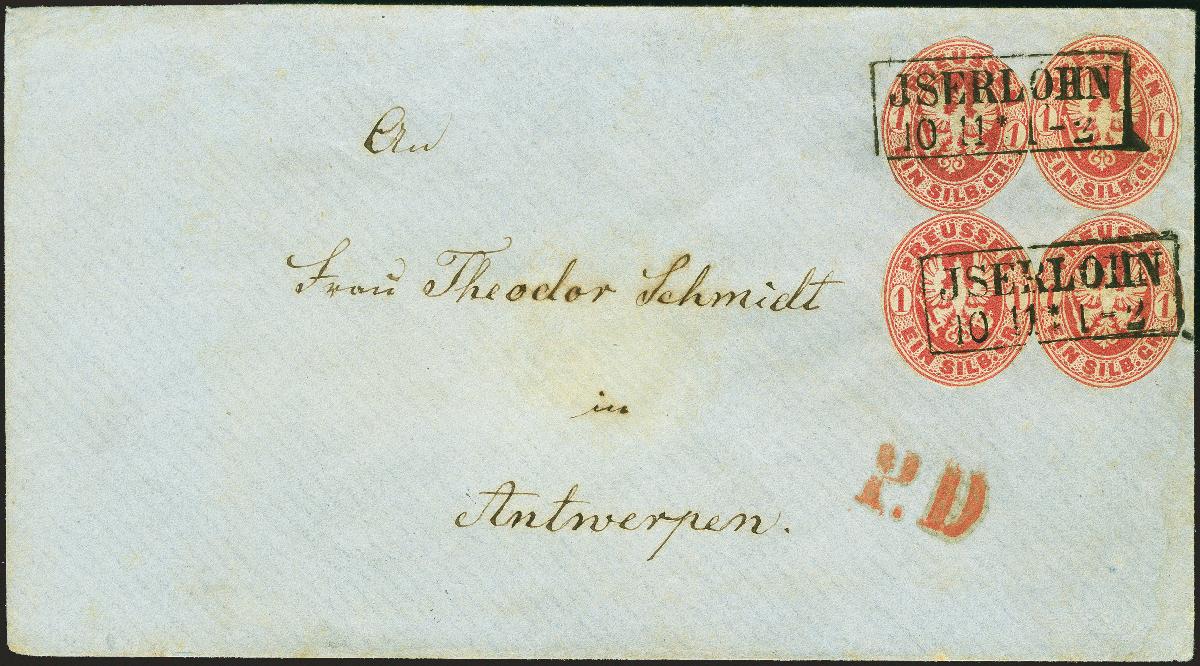 PREUSSEN
1 1
EIN SILB. GR.
PREUSSEN
1 1
EIN SILB. GR.
JSERLOHN
10 11 * 1-2
An
PREUSSEN
1
EIN SILB. GR.
PREUSSEN
1
EIN SILB. GR.
JSERLOHN
10 11 * 1-2
Frau Theodor Schmidt
in
Antwerpen.
P. D